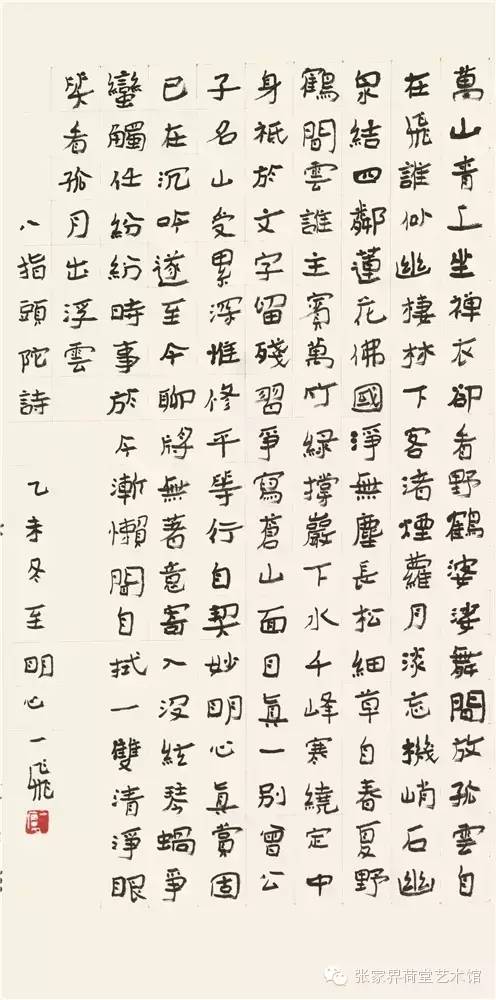 萬山青上坐禪衣卻看野鶴婆娑舞閒放孤雲自
在飛誰似幽棲林下客渚煙蘿月淡忘機峭石幽
泉結四鄰蓮花佛國淨無塵長松細草自春夏野
鶴閒雲誰主賓萬竹綠撐巖下水千峰寒繞定中
身祇於文字留殘習爭寫蒼山面目真一別曾公
子名山受累深惟修平等行自契妙明心真賞固
已在沉吟遂至今聊將無著意寄入沒絃琴蝸爭
蠻觸任紛紛時事於今漸懶聞自拭一雙清淨眼
笑看孤月出浮雲
八指頭陀詩 乙未冬至明心一飛
张家界荷堂艺术馆